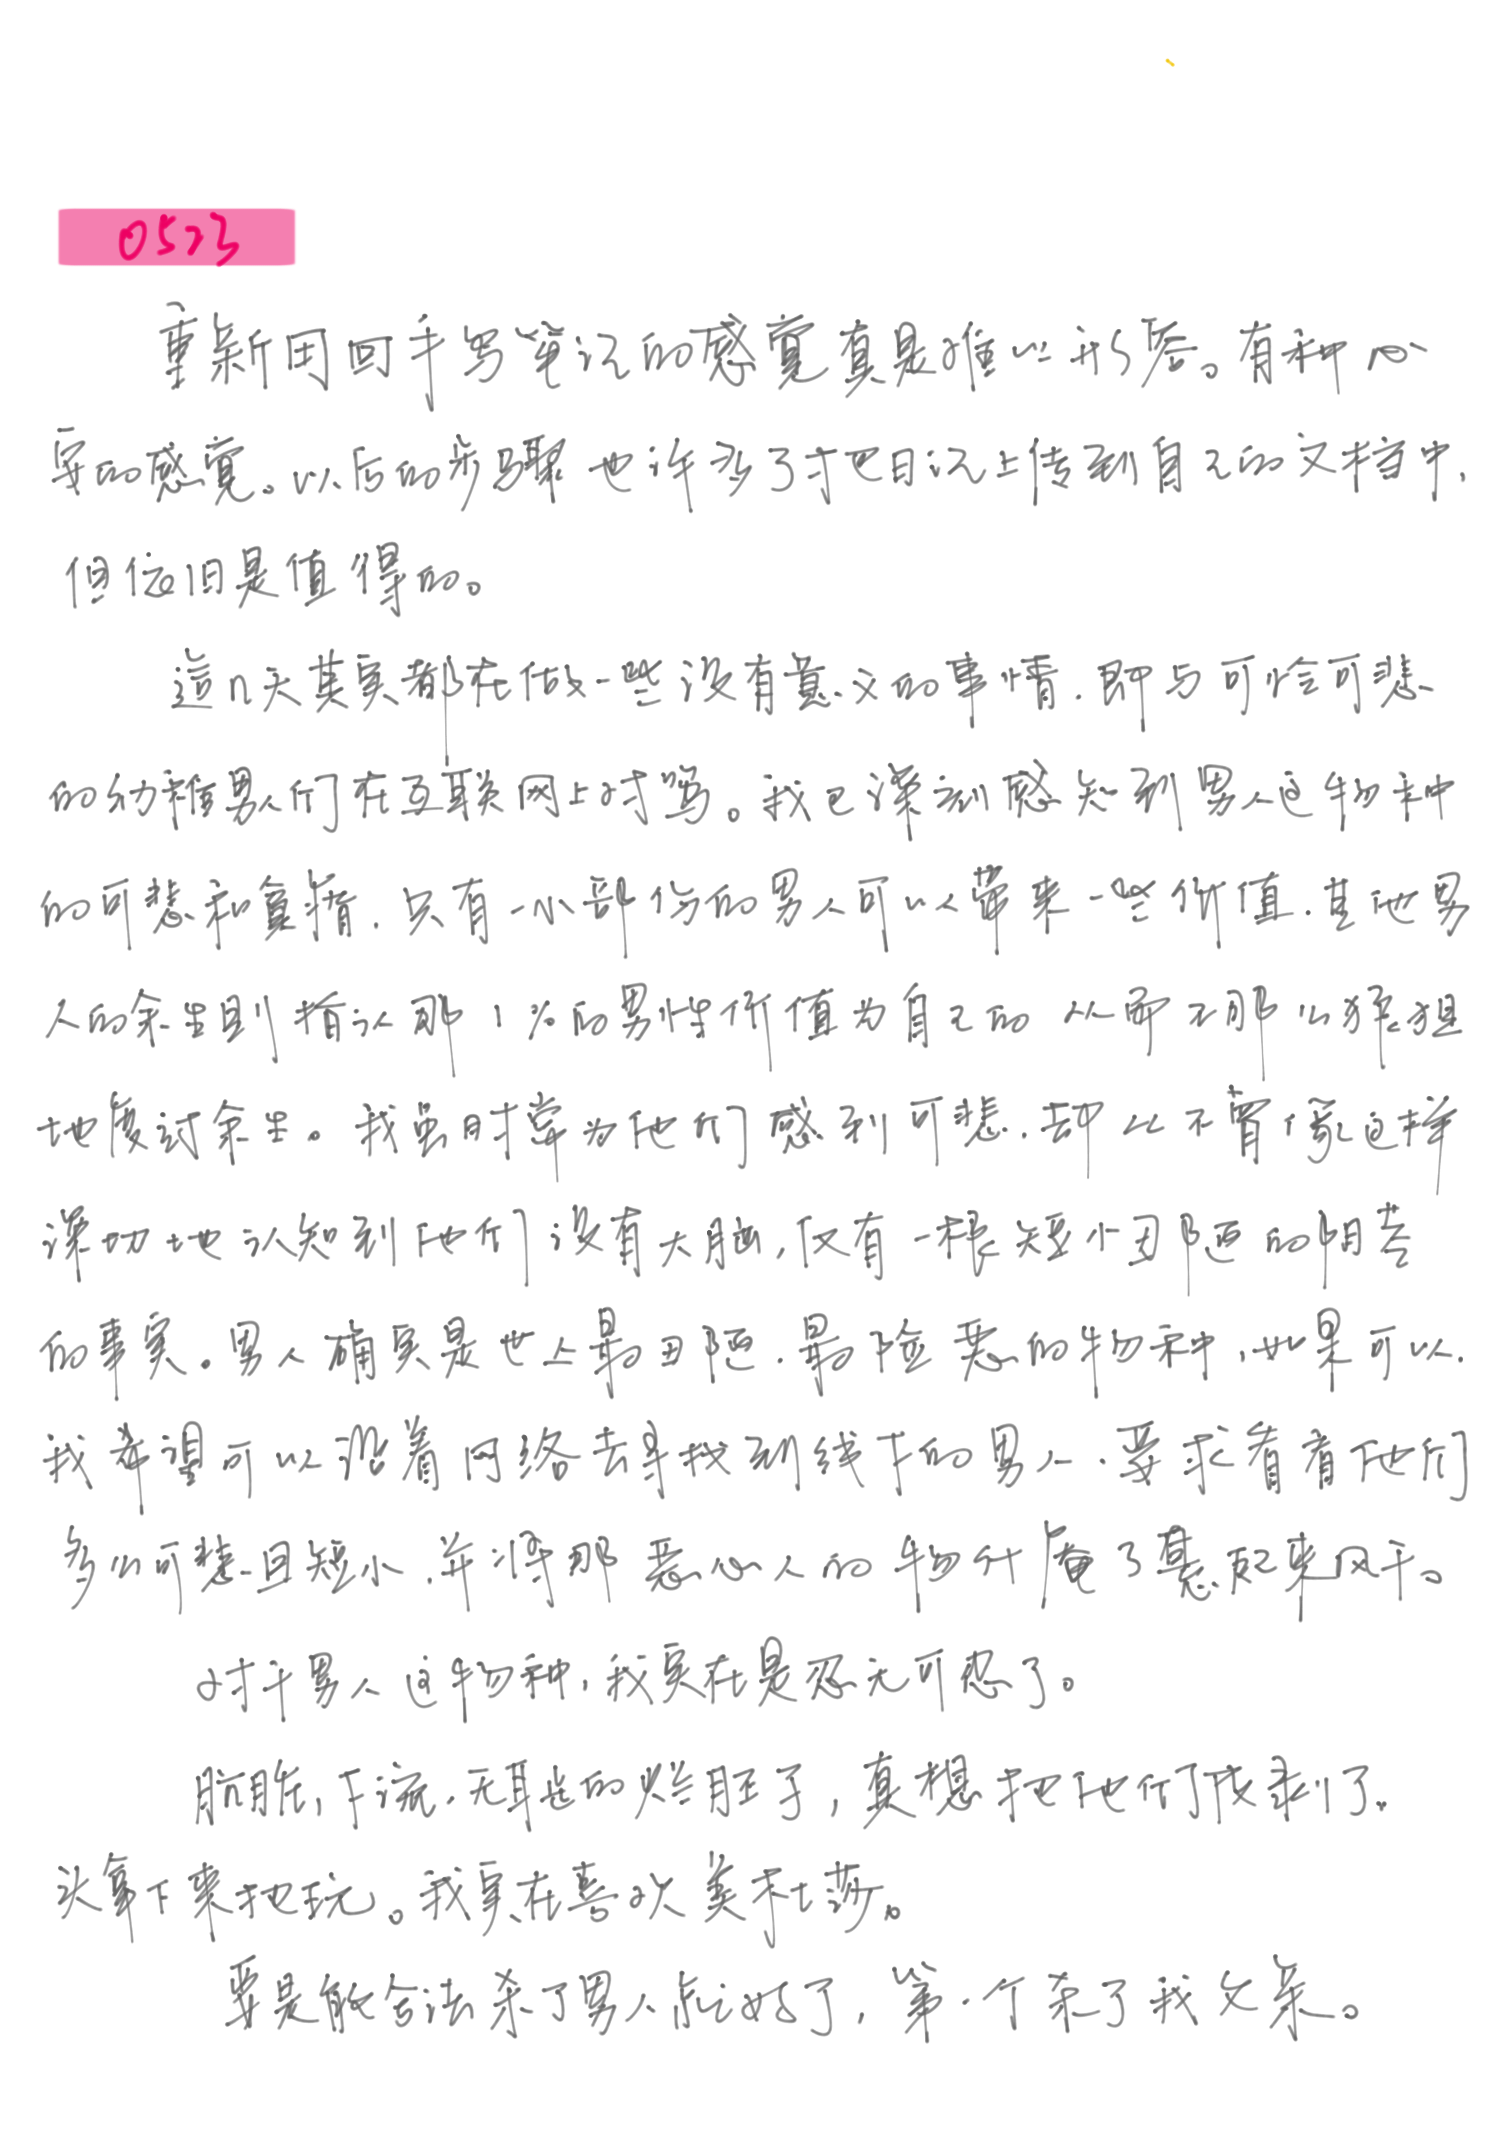 0523
重新用回手写笔记的感觉真是难以形容。有种心
安的感觉。以后的步骤也许多了才把日记上传到自己的文档中，
但依旧是值得的。
這几天其实都在做一些没有意义的事情.即与可怜可悲
的幼稚男人们在互联网上对骂。我已深刻感知到男人这物种
的可悲和寡婿.只有一小部份的男人可以带来一些价值.其他男
人的余生则指认那1%的男性价值为自己的 从而不那么猥狙
地度过余生。我虽时常为他们感到可悲.却从不曾像这样
深切地认知到他们没有大脑,仅有一根短小丑陋的阴茎
的事实。男人确实是世上最丑陋.最险恶的物种,如果可以.
我希望可以沿着网络去寻找到线下的男人.要求看看他们
多么可悲且短小.并将那恶心人的物什阉了悬起来风干。
对于男人这物种,我实在是忍无可忍了。
肮脏,下流.无耻的烂胚子,真想把他们伐剥了.
头拿下来把玩。我实在喜欢美杜莎。
要是能合法杀了男人就好了,第一个杀了我父亲。